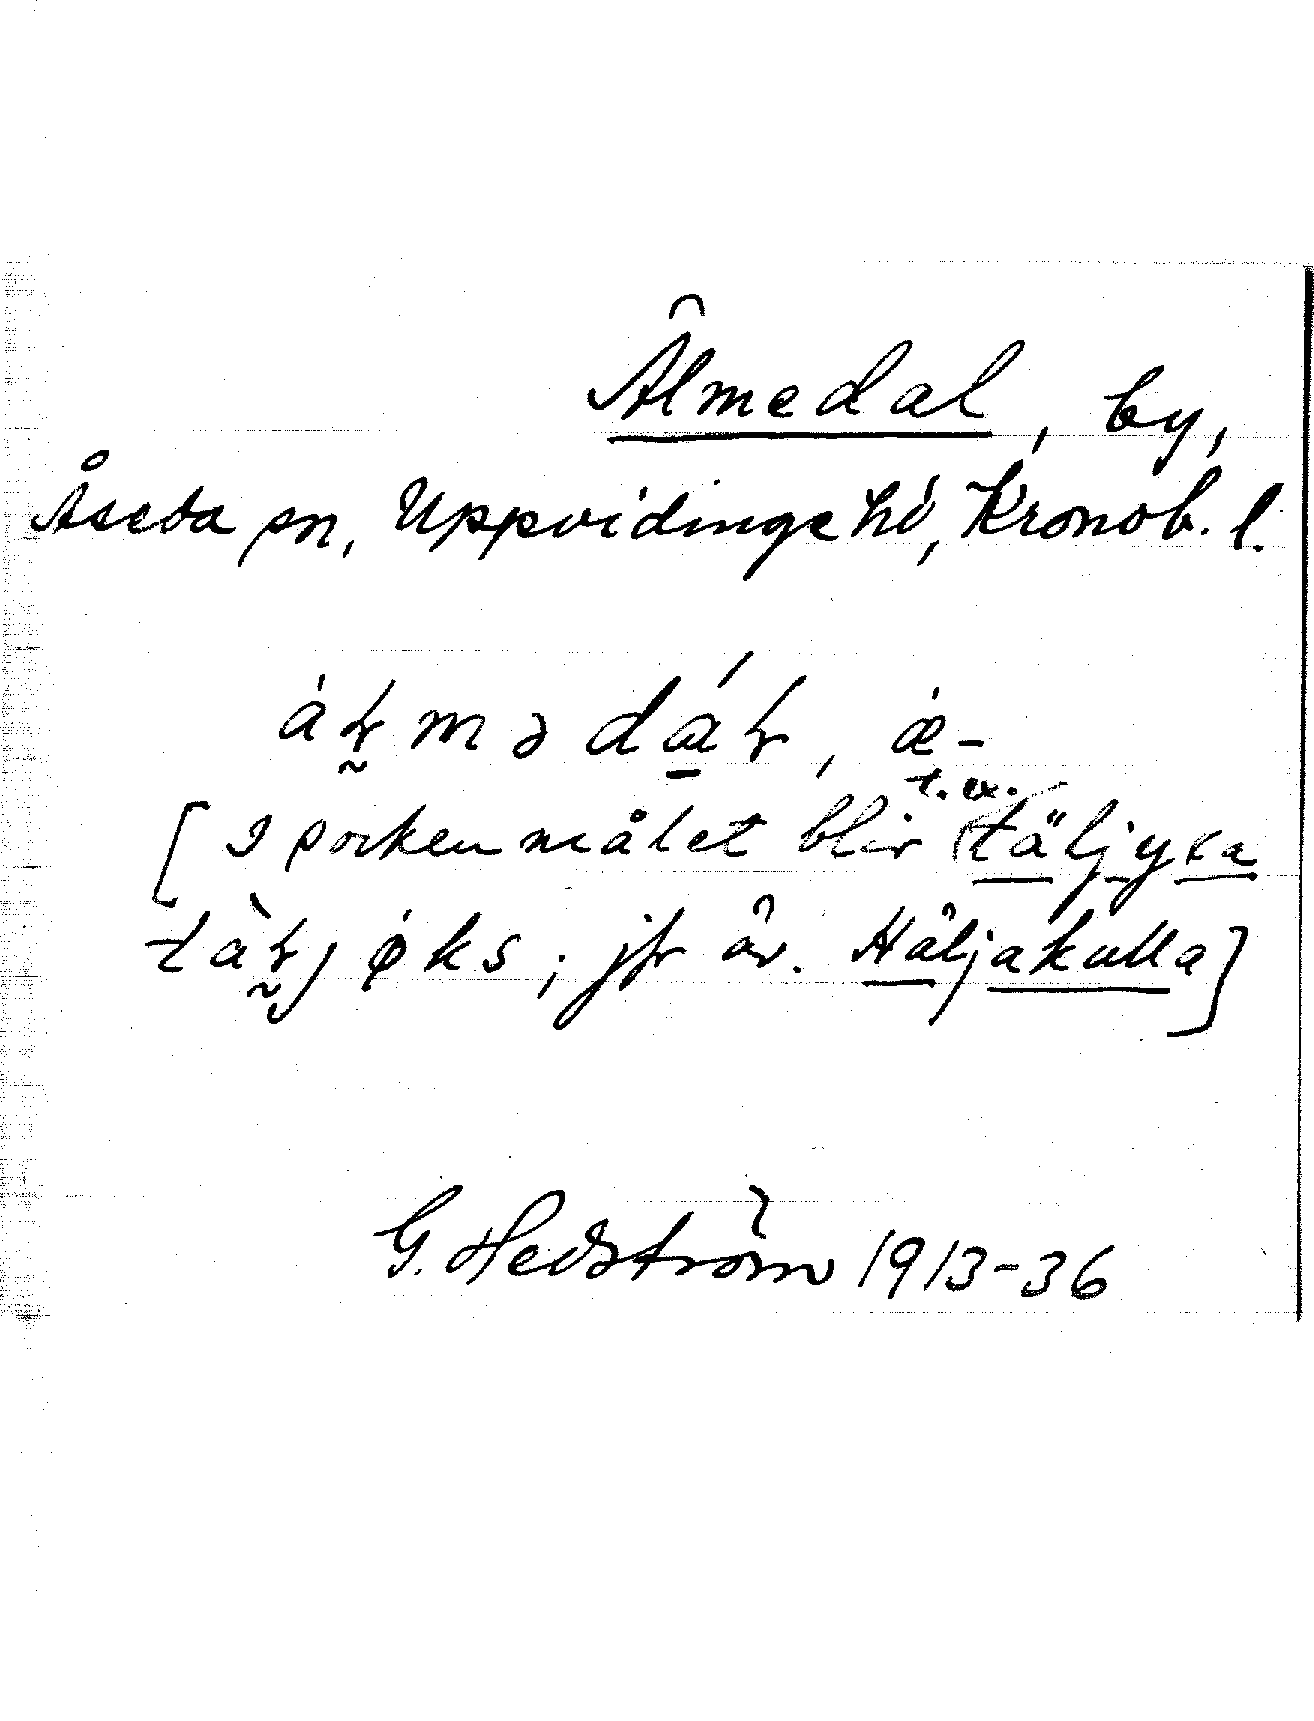 Älmedal, by,
Åseda sn, Uppvidinge hd, Kronob. l.
áꝉ̰mədáꝉ, ǽ-
[I sockenmålet blir t. ex. täljyxa
tàꝉ̰jøks; jfr äv. Häljakulla]
G. Hedström 1913-36